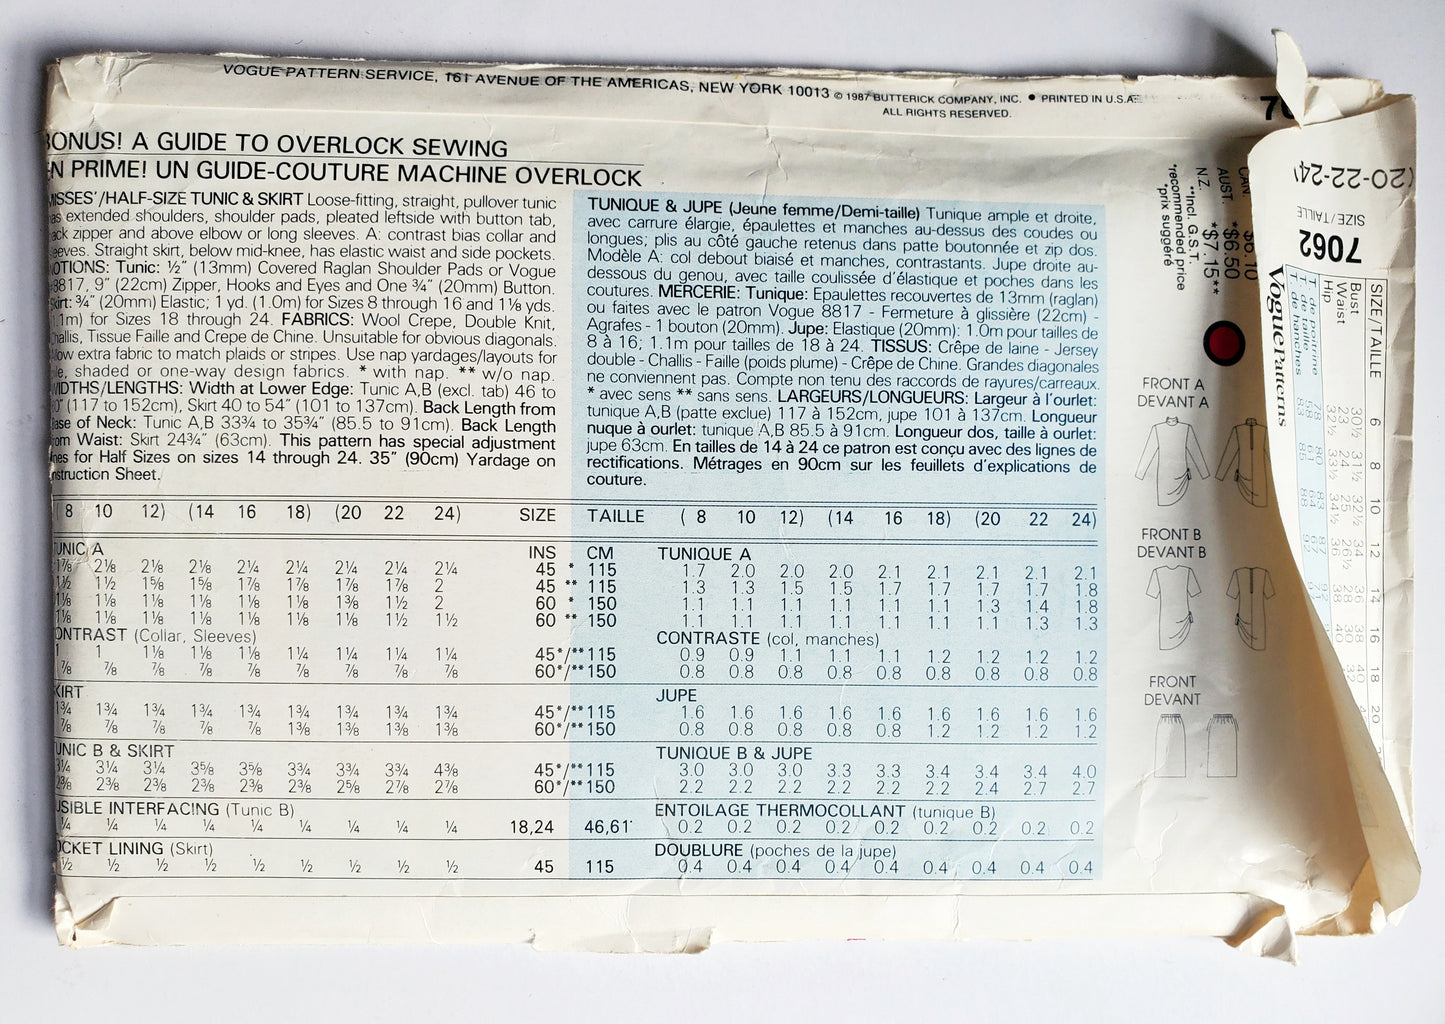 VOGUE PATTERN SERVICE, 161 AVENUE OF THE AMERICAS, NEW YORK 10013 © 1987 BUTTERICK COMPANY, INC. ● PRINTED IN U.S.A.
ALL RIGHTS RESERVED.
BONUS! A GUIDE TO OVERLOCK SEWING
EN PRIME! UN GUIDE-COUTURE MACHINE OVERLOCK
MISSES'/HALF-SIZE TUNIC & SKIRT Loose-fitting, straight, pullover tunic
has extended shoulders, shoulder pads, pleated leftside with button tab,
back zipper and above elbow or long sleeves. A: contrast bias collar and
sleeves. Straight skirt, below mid-knee, has elastic waist and side pockets.
NOTIONS: Tunic: ½" (13mm) Covered Raglan Shoulder Pads or Vogue
8817, 9" (22cm) Zipper, Hooks and Eyes and One ¾" (20mm) Button.
Skirt: ¾" (20mm) Elastic; 1 yd. (1.0m) for Sizes 8 through 16 and 1⅛ yds.
(1.1m) for Sizes 18 through 24. FABRICS: Wool Crepe, Double Knit,
Challis, Tissue Faille and Crepe de Chine. Unsuitable for obvious diagonals.
Allow extra fabric to match plaids or stripes. Use nap yardages/layouts for
pile, shaded or one-way design fabrics. * with nap. ** w/o nap.
WIDTHS/LENGTHS: Width at Lower Edge: Tunic A,B (excl. tab) 46 to
60" (117 to 152cm), Skirt 40 to 54" (101 to 137cm). Back Length from
Base of Neck: Tunic A,B 33¾ to 35¾" (85.5 to 91cm). Back Length
from Waist: Skirt 24¾" (63cm). This pattern has special adjustment
lines for Half Sizes on sizes 14 through 24. 35" (90cm) Yardage on
Construction Sheet.
TUNIQUE & JUPE (Jeune femme/Demi-taille) Tunique ample et droite,
avec carrure élargie, épaulettes et manches au-dessus des coudes ou
longues; plis au côté gauche retenus dans patte boutonnée et zip dos.
Modèle A: col debout biaisé et manches, contrastants. Jupe droite au-
dessous du genou, avec taille coulissée d'élastique et poches dans les
coutures. MERCERIE: Tunique: Epaulettes recouvertes de 13mm (raglan)
ou faites avec le patron Vogue 8817 - Fermeture à glissière (22cm) -
Agrafes - 1 bouton (20mm). Jupe: Elastique (20mm): 1.0m pour tailles de
8 à 16; 1.1m pour tailles de 18 à 24. TISSUS: Crêpe de laine - Jersey
double - Challis - Faille (poids plume) - Crêpe de Chine. Grandes diagonales
ne conviennent pas. Compte non tenu des raccords de rayures/carreaux.
* avec sens ** sans sens. LARGEURS/LONGUEURS: Largeur à l'ourlet:
tunique A,B (patte exclue) 117 à 152cm, jupe 101 à 137cm. Longueur
nuque à ourlet: tunique A,B 85.5 à 91cm. Longueur dos, taille à ourlet:
jupe 63cm. En tailles de 14 à 24 ce patron est conçu avec des lignes de
rectifications. Métrages en 90cm sur les feuillets d'explications de
couture.
( 8 10 12) (14 16 18) (20 22 24) SIZE TAILLE ( 8 10 12) (14 16 18) (20 22 24)
TUNIC A INS CM TUNIQUE A
1⅞ 2⅛ 2⅛ 2⅛ 2¼ 2¼ 2¼ 2¼ 2¼ 45 * 115 1.7 2.0 2.0 2.0 2.1 2.1 2.1 2.1 2.1
1½ 1½ 1⅝ 1⅝ 1⅞ 1⅞ 1⅞ 1⅞ 2 45 ** 115 1.3 1.3 1.5 1.5 1.7 1.7 1.7 1.7 1.8
1⅛ 1⅛ 1⅛ 1⅛ 1⅛ 1⅛ 1⅜ 1½ 2 60 * 150 1.1 1.1 1.1 1.1 1.1 1.1 1.3 1.4 1.8
1⅛ 1⅛ 1⅛ 1⅛ 1⅛ 1⅛ 1⅛ 1½ 1½ 60 ** 150 1.1 1.1 1.1 1.1 1.1 1.1 1.1 1.3 1.3
CONTRAST (Collar, Sleeves) CONTRASTE (col, manches)
1 1 1⅛ 1⅛ 1¼ 1¼ 1¼ 1¼ 45*/** 115 0.9 0.9 1.1 1.1 1.1 1.2 1.2 1.2 1.2
⅞ ⅞ ⅞ ⅞ ⅞ ⅞ ⅞ ⅞ ⅞ 60*/** 150 0.8 0.8 0.8 0.8 0.8 0.8 0.8 0.8 0.8
SKIRT JUPE
1¾ 1¾ 1¾ 1¾ 1¾ 1¾ 1¾ 1¾ 1¾ 45*/** 115 1.6 1.6 1.6 1.6 1.6 1.6 1.6 1.6 1.6
⅞ ⅞ ⅞ ⅞ ⅞ 1⅜ 1⅜ 1⅜ 1⅜ 60*/** 150 0.8 0.8 0.8 0.8 0.8 1.2 1.2 1.2 1.2
TUNIC B & SKIRT TUNIQUE B & JUPE
3¼ 3¼ 3¼ 3⅝ 3⅝ 3¾ 3¾ 3¾ 4⅜ 45*/** 115 3.0 3.0 3.0 3.3 3.3 3.4 3.4 3.4 4.0
2⅜ 2⅜ 2⅜ 2⅜ 2⅜ 2⅜ 2⅝ 2⅞ 2⅞ 60*/** 150 2.2 2.2 2.2 2.2 2.2 2.2 2.4 2.7 2.7
FUSIBLE INTERFACING (Tunic B) ENTOILAGE THERMOCOLLANT (tunique B)
¼ ¼ ¼ ¼ ¼ ¼ ¼ ¼ ¼ 18,24 46,61 0.2 0.2 0.2 0.2 0.2 0.2 0.2 0.2 0.2
POCKET LINING (Skirt) DOUBLURE (poches de la jupe)
½ ½ ½ ½ ½ ½ ½ ½ ½ 45 115 0.4 0.4 0.4 0.4 0.4 0.4 0.4 0.4 0.4
CAN.
AUST. *$6.50
N.Z. *$7.15**
**Incl. G.S.T.
*recommended price
*prix suggéré
FRONT A
DEVANT A
FRONT B
DEVANT B
FRONT
DEVANT
(20-22-24)
SIZE/TAILLE
7062
Vogue Patterns
SIZE/TAILLE 6 8 10 12 14 16 18 20
Bust 30½ 31½ 32½ 34 36 38 40
Waist 23 24 25 26½ 28 30 32
Hip 32½ 33½ 34½ 36 38 40
T. de poitrine 78 80 83 87
T. de taille 58 61 64 67
T. de hanches 83 85 88 92